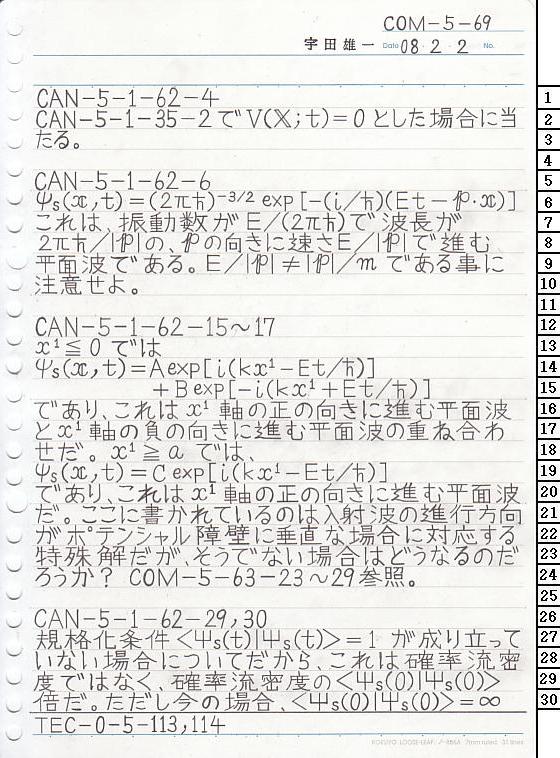 COM-5-69
宇田雄一 Date 08 2 2 No.
CAN-5-1-62-4
CAN-5-1-35-2でV(𝕏;t)=0とした場合に当
たる。
CAN-5-1-62-6
ψs(𝕩,t)=(2πħ)^-3/2 exp[-(i/ħ)(Et-𝕡·𝕩)]
これは、振動数がE/(2πħ)で波長が
2πħ/|𝕡|の、𝕡の向きに速さE/|𝕡|で進む
平面波である。E/|𝕡|≠|𝕡|/mである事に
注意せよ。
CAN-5-1-62-15~17
x¹≦0では
ψs(𝕩,t)=A exp[i(kx¹-Et/ħ)]
+B exp[-i(kx¹+Et/ħ)]
であり、これはx¹軸の正の向きに進む平面波
とx¹軸の負の向きに進む平面波の重ね合わ
せだ。x¹≧aでは、
ψs(𝕩,t)=C exp[i(kx¹-Et/ħ)]
であり、これはx¹軸の正の向きに進む平面波
だ。ここに書かれているのは入射波の進行方向
がポテンシャル障壁に垂直な場合に対応する
特殊解だが、そうでない場合はどうなるのだ
ろうか? COM-5-63-23~29参照。
CAN-5-1-62-29,30
規格化条件<ψs(t)|ψs(t)>=1 が成り立って
いない場合についてだから、これは確率流密
度ではなく、確率流密度の<ψs(0)|ψs(0)>
倍だ。ただし今の場合、<ψs(0)|ψs(0)>=∞
TEC-0-5-113,114
KOKUYO LOOSE-LEAF ノ-836A 7mm ruled 31 lines
1
2
3
4
5
6
7
8
9
10
11
12
13
14
15
16
17
18
19
20
21
22
23
24
25
26
27
28
29
30